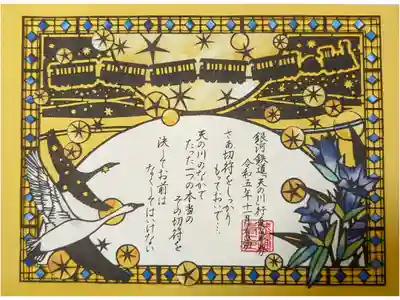 銀河鉄道 天の川行
令和五年十一月
さあ切符をしっかり
もっておいで…
天の川のなかで
たった一つの本当の
その切符を
決してお前は
なくしてはいけない